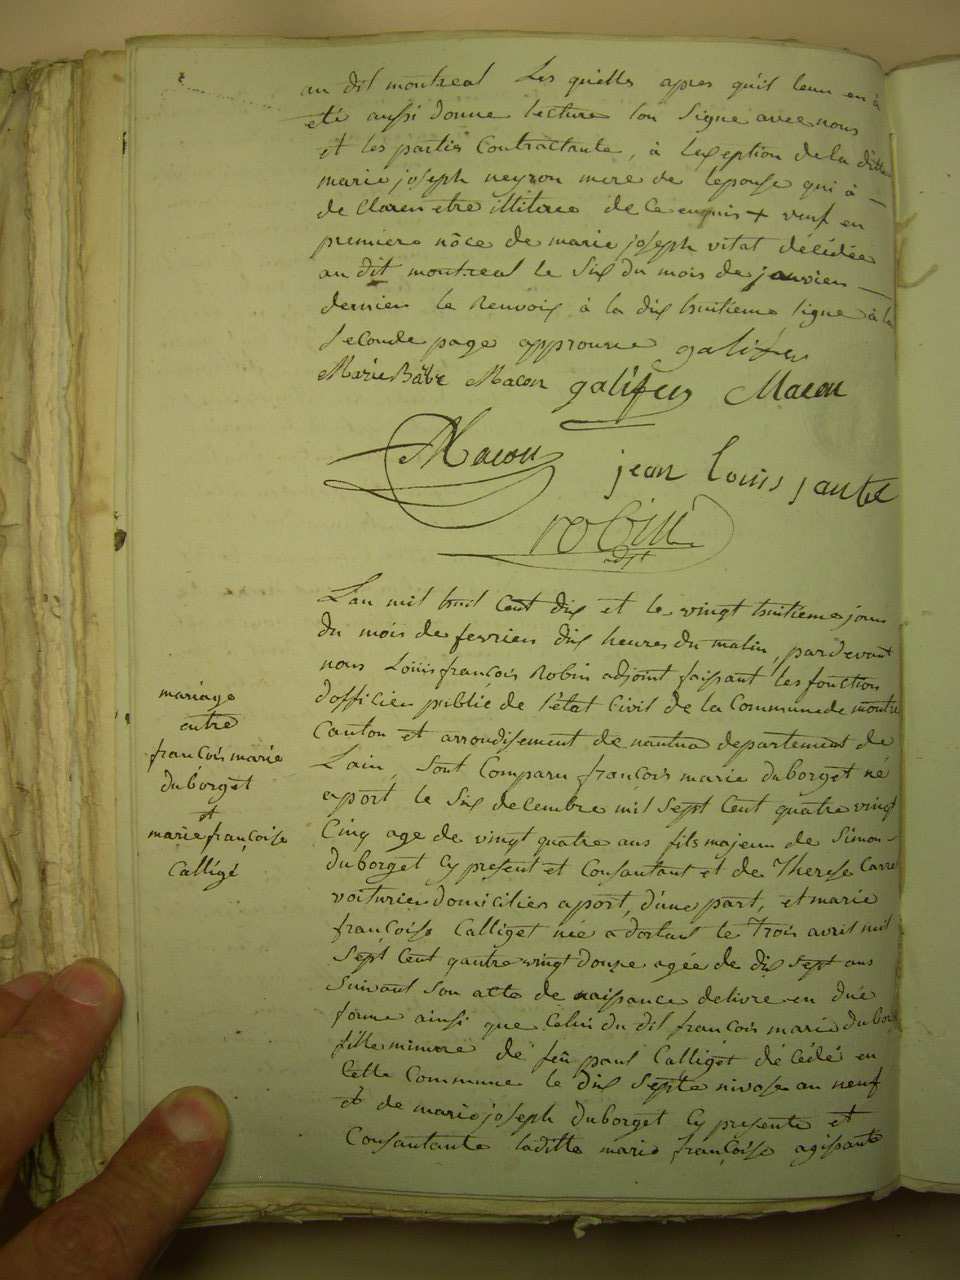 au dit montreal Les quelles apres qu'il leur en à
eté aussi donne lecture lon Signe avec nous
et les partis Contractante, à lexeption de la ditte
marie joseph neyron mere de lepouse qui à
de Claren etre illitree de Ce enquis + veuf en
premiere nôce de marie joseph vitat décédée
au dit montreal le Six du mois de janvier
dernier le Renvois à la dix huitieme ligne à la
Seconde page approuvee galifer
Marie Bâbe Macon galifer Macon
Macon jean louis jantet
robin
adjt
Lan mil huit Cent dix et le vingt huitieme jour
du mois de fevrier dix heures du matin, pardevant
nous Louis françois Robin adjoint faissant les fonction
dofficier publie de l'état Civil de la Commune de montre
Canton et arrondissement de nantua departement de
Lain, Sont Comparu françois marie duborget né
aport le Six decembre mil Sept Cent quatre vingt
Cinq age de vingt quatre ans fils majeur de Simon
duborget Cy present et Consantant et de Therese Carre
voiturier domiciliés aport, d'une part, et marie
françoise Calliget née adortait le Trois avril mil
Sept Cent quatre vingt douze agée de dix Sept ans
Suivant Son acte de naissance delivre en due
forme ainsi que Celui du dit françois marie dubor
fille mineure de feû paul Calliget décédé en
Cette Commune le dix Septe nivose an neuf
et de marie joseph duborget Cy presente et
Consantante laditte marie françoise agissante
mariage
entre
françois marie
duborget
et
marie françoise
Calligé